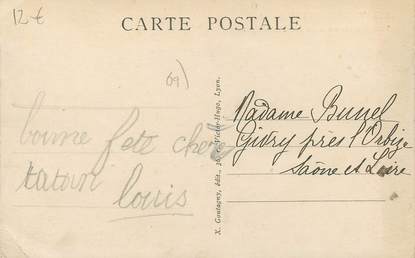 12 €
CARTE POSTALE
69)
bonne fete chere
tatan
louis
X. Goutagny, édit., Victor-Hugo, Lyon.
Madame Bunel
Givry près l'Orbize
Saône et Loire